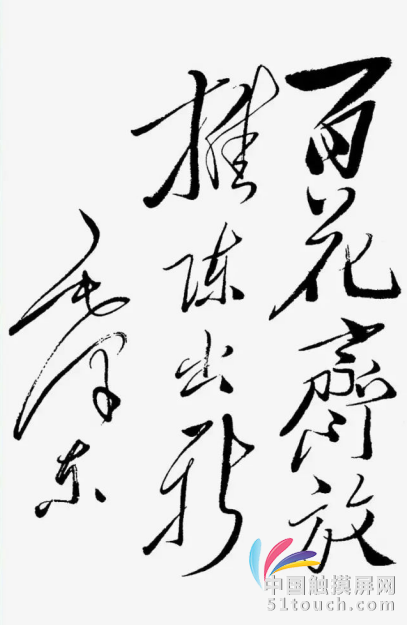 百花齊放
推陈出新
毛泽东
中国触摸屏网
51touch.com